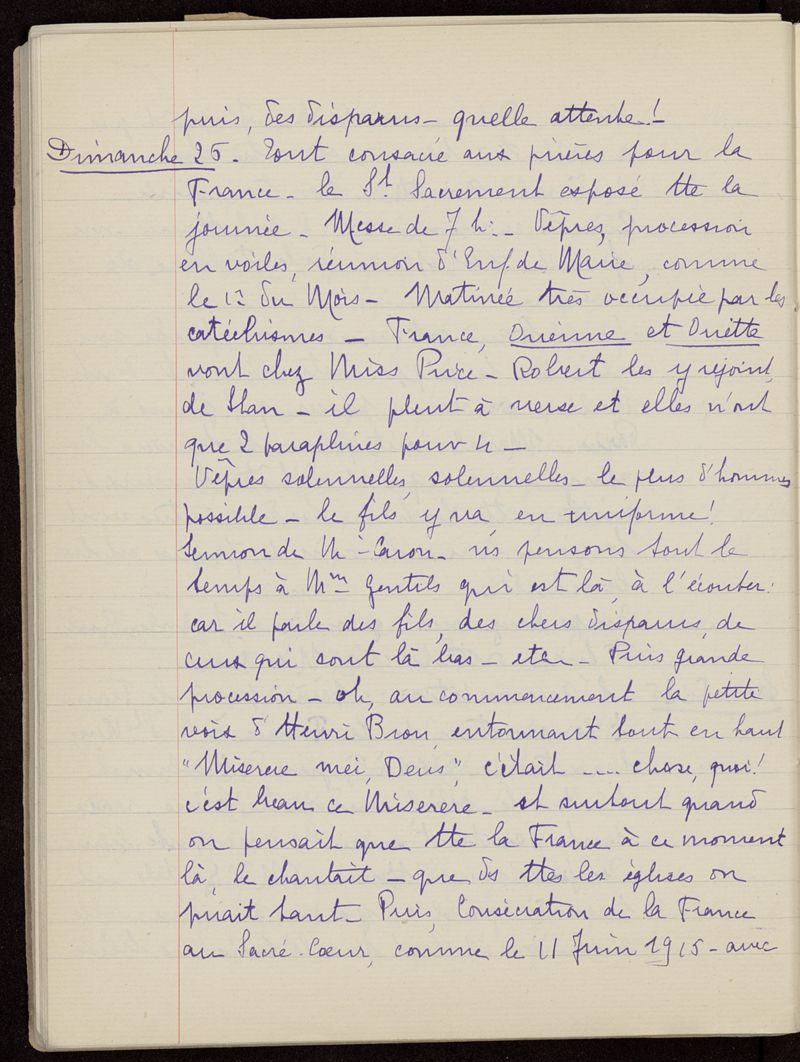 puis, des disparus – quelle attente !
Dimanche 26. Tout consacré aux prières pour la
France – le St Sacrement exposé tte la
journée – Messe de 7 h. – Vêpres, procession
en voiles, réunion d'Enf. de Marie, comme
le 1er du Mois – Matinée très occupée par les
catéchismes – France, et
vont chez Miss Price – Robert les y rejoint,
de Stan – il pleut à verse et elles n'ont
que 2 parapluies pour 4 –
Vêpres solennelles, solennelles – le plus d'hommes
possible – le fils y va, en uniforme !
Sermon de Mr Caron – ns pensons tout le
temps à Mme Gentils qui est là, à l'écouter :
car il parle des fils, des chers disparus, de
ceux qui sont là bas – etc – Puis grande
procession – oh, au commencement la petite
voix d'Henri Bron, entonnant tout en haut
"Miserere mei, Deus", c'était .... chose, quoi !
c'est beau ce Miserere – et surtout quand
on pensait que tte la France à ce moment
là, le chantait – que ds ttes les églises on
priait tant – Puis, Consécration de la France
au Sacré-Cœur, comme le 11 Juin 1915 – avec